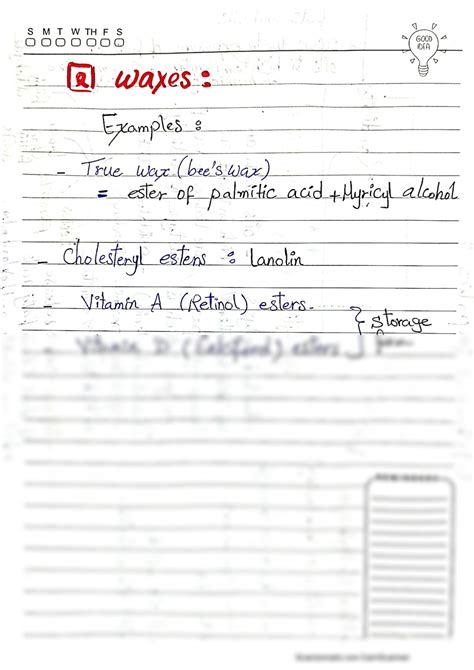 S M T W TH F S
GOOD
IDEA
2 waxes :
Examples :
- True wax (bee's wax)
= ester of palmitic acid + Myricyl alcohol
- Cholesteryl esters : lanolin
- Vitamin A (Retinol) esters.
} storage
- Vitamin D (
) esters
REMINDERS